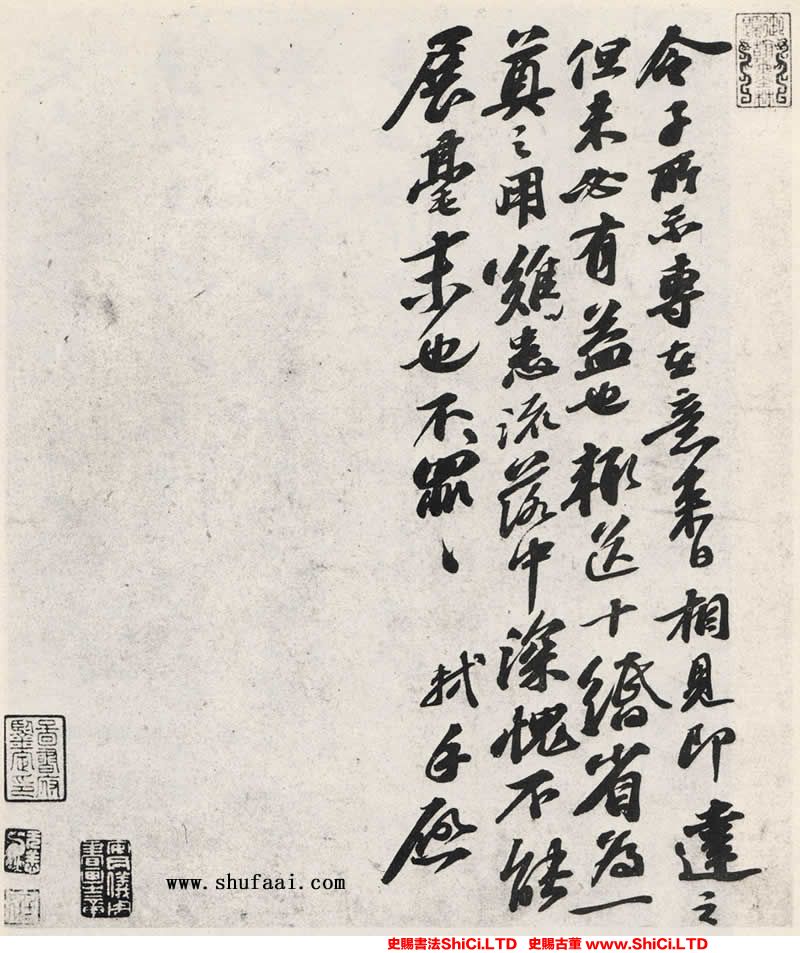 令子所示專在意来日相見即達之
但未必有益也輒送十縑省為一
奠之用雖悉流落中深愧不能
展毫末也不罪〻
軾手啟
安儀周書畫之章
www.shufaai.com
史賜書法ShiCi.LTD 史賜古董 www.ShiCi.LTD